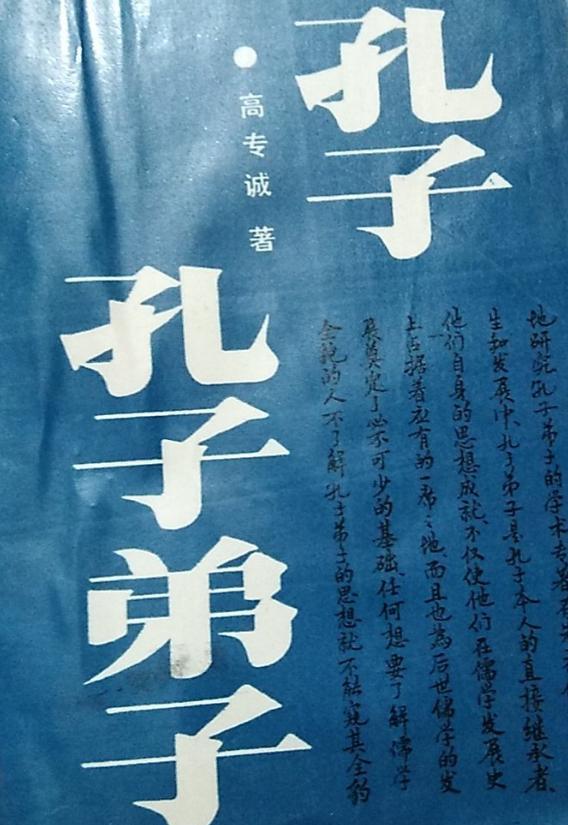 孔子
孔子弟子
高专诚 著
地研究孔子弟子的学术专著
生和发展中、孔子弟子是孔子本人的直接继承者、
他们自身的思想成就、不仅使他们在儒学发展史
上占据着应有的一席之地而且也为后世儒学的发
展奠定了必不可少的基础、任何想要了解儒学
全貌的人不了解孔子弟子的思想就不能窥其全豹